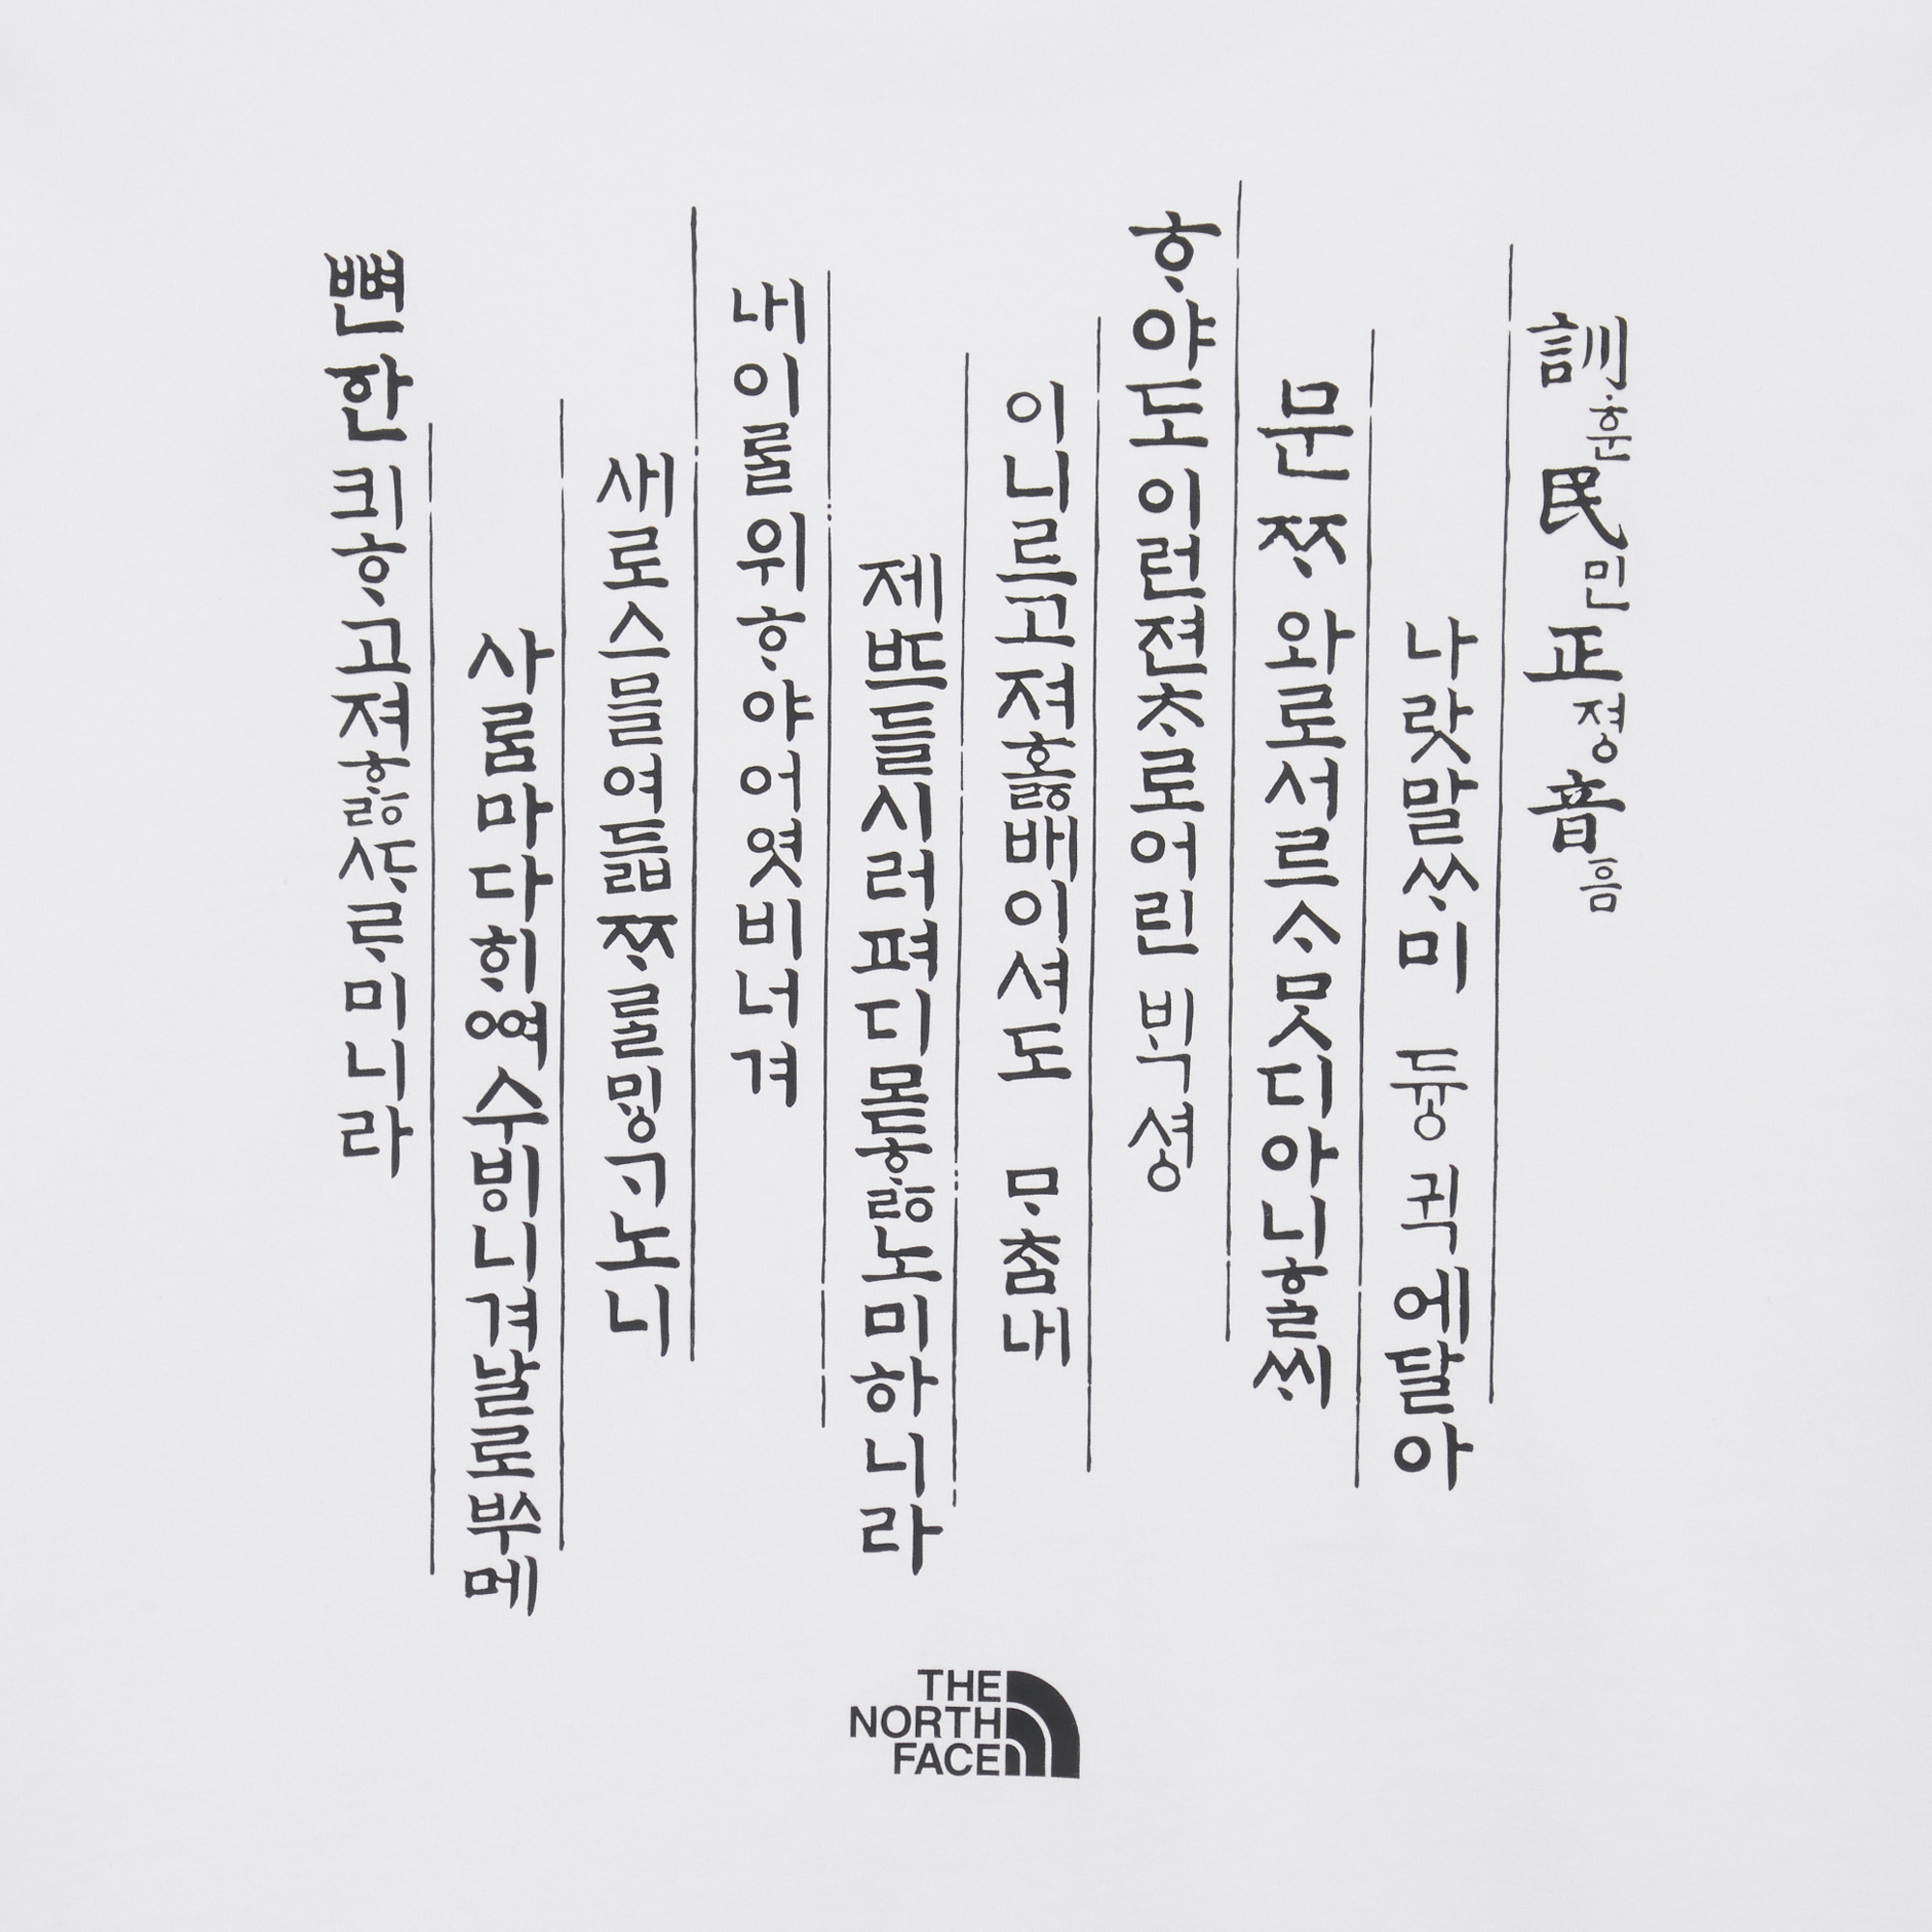 訓훈民민正졍音ᅙᅳᆷ
나랏말ᄊᆞ미 듕귁에달아
문ᄍᆞ와로서르ᄉᆞᄆᆞᆺ디아니ᄒᆞᆯᄊᆡ
ᄒᆞ야도이런젼ᄎᆞ로어린 ᄇᆡᆨ셩
이니르고져ᄒᆞᇙ배이셔도 ᄆᆞᄎᆞᆷ내
제ᄠᅳ들시러펴디몯ᄒᆞᇙ노미하니라
내이ᄅᆞᆯ위ᄒᆞ야어엿비너겨
새로스믈여듧ᄍᆞᄅᆞᆯᄆᆡᇰᄀᆞ노니
사ᄅᆞᆷ마다ᄒᆡᅇᅧ수ᄫᅵ니겨날로ᄡᅮ메
뼌한킈ᄒᆞ고져ᄒᆞᇙᄯᆞᄅᆞ미니라
THE
NORTH
FACE